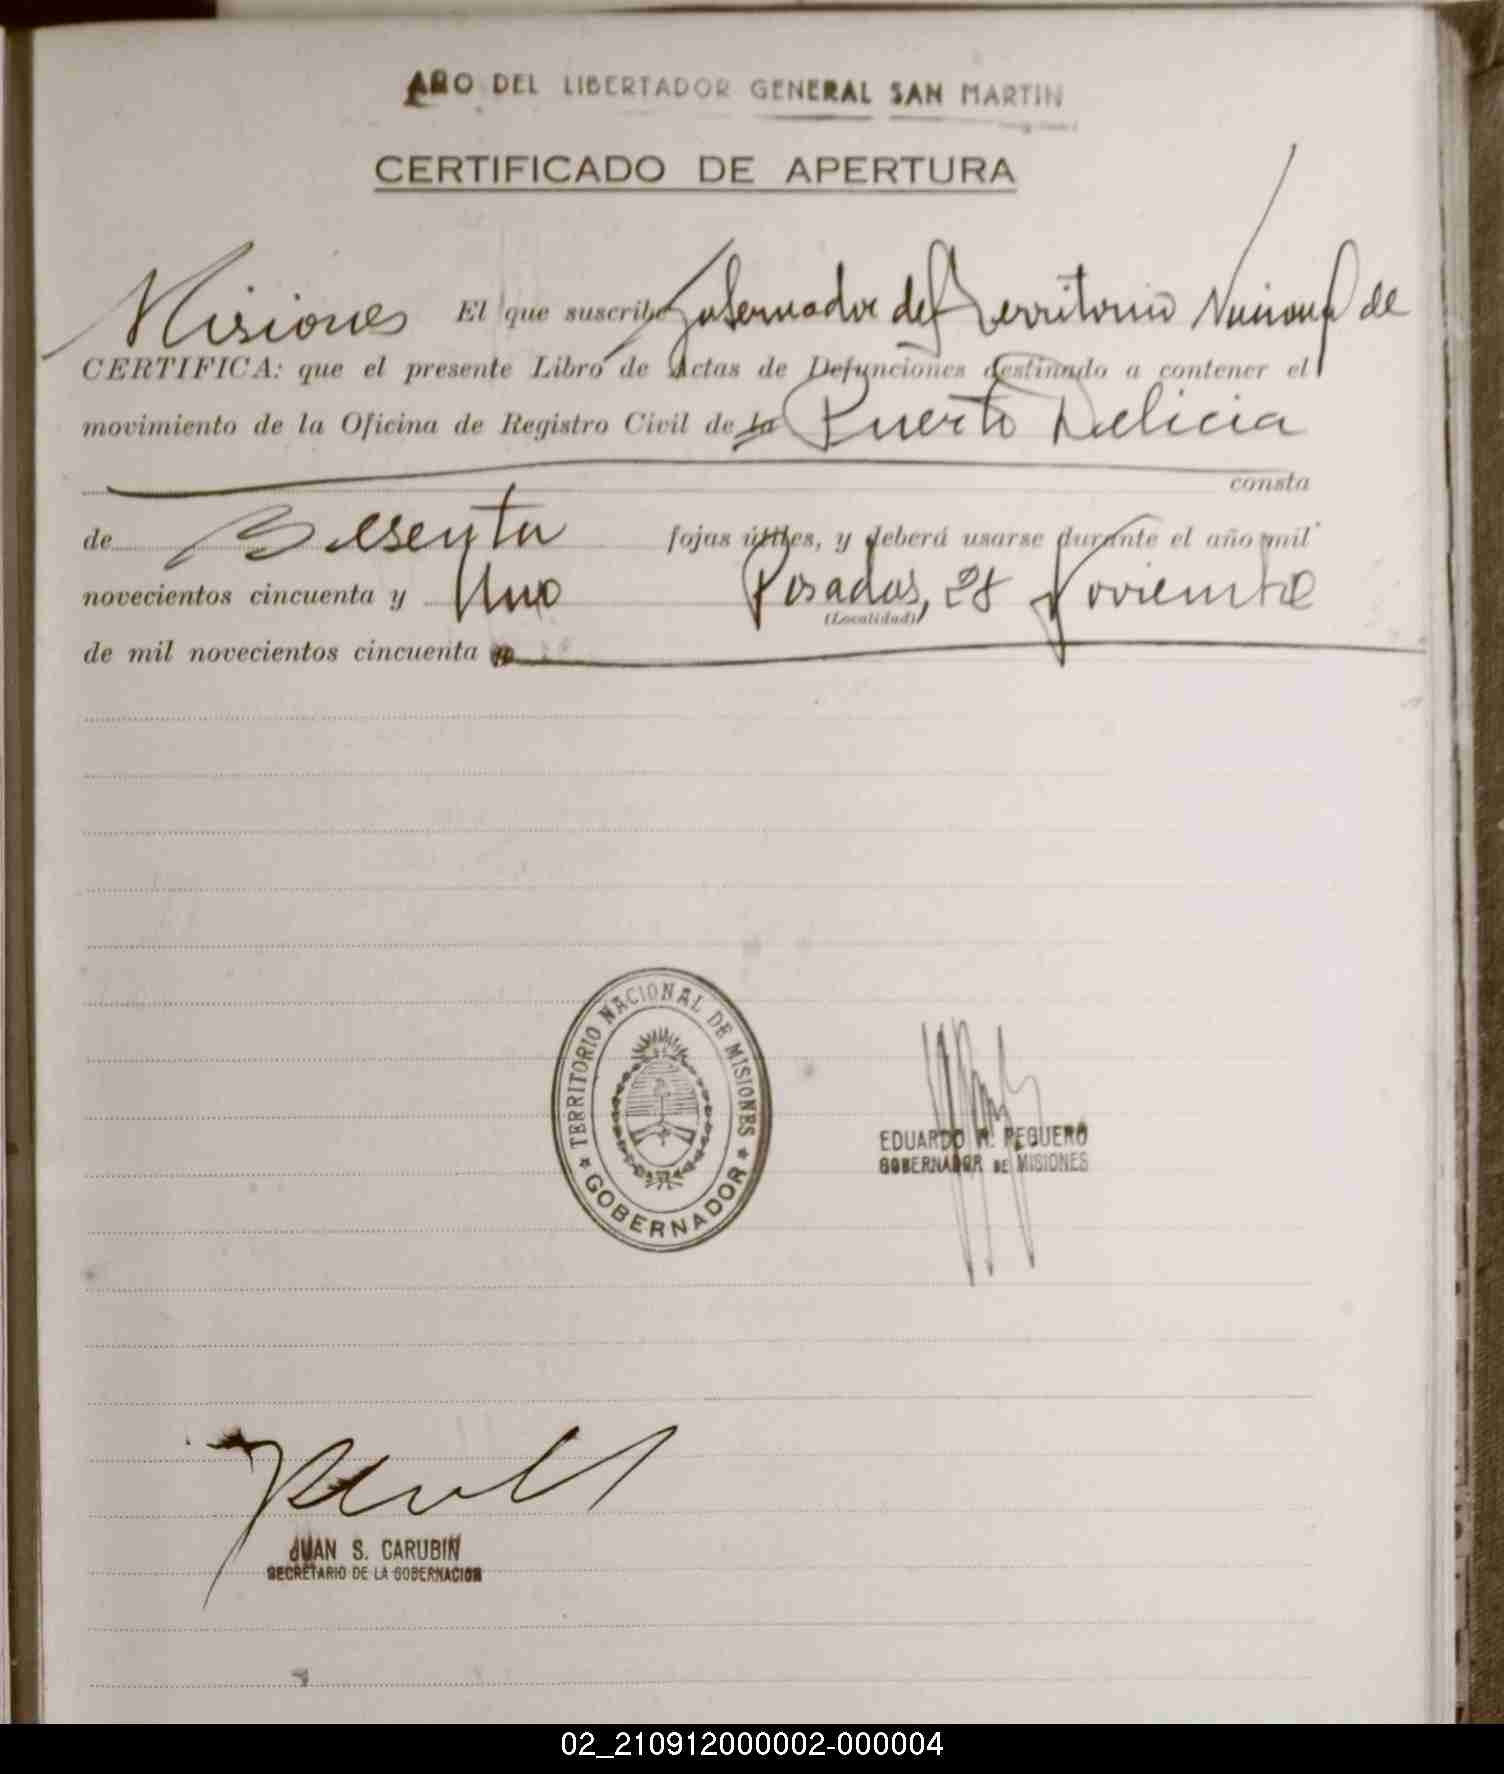 AÑO DEL LIBERTADOR GENERAL SAN MARTIN
CERTIFICADO DE APERTURA
El que suscribe Gobernador del Territorio Nacional de
Misiones
CERTIFICA: que el presente Libro de Actas de Defunciones destinado a contener el
movimiento de la Oficina de Registro Civil de la Puerto Delicia
consta
de Sesenta fojas útiles, y deberá usarse durante el año mil
novecientos cincuenta y Uno Posadas, 28 Noviembre
(Localidad)
de mil novecientos cincuenta
TERRITORIO NACIONAL DE MISIONES
GOBERNADOR
EDUARDO PEGUERO
GOBERNADOR DE MISIONES
JUAN S. CARUBIN
SECRETARIO DE LA GOBERNACION
02_210912000002-000004